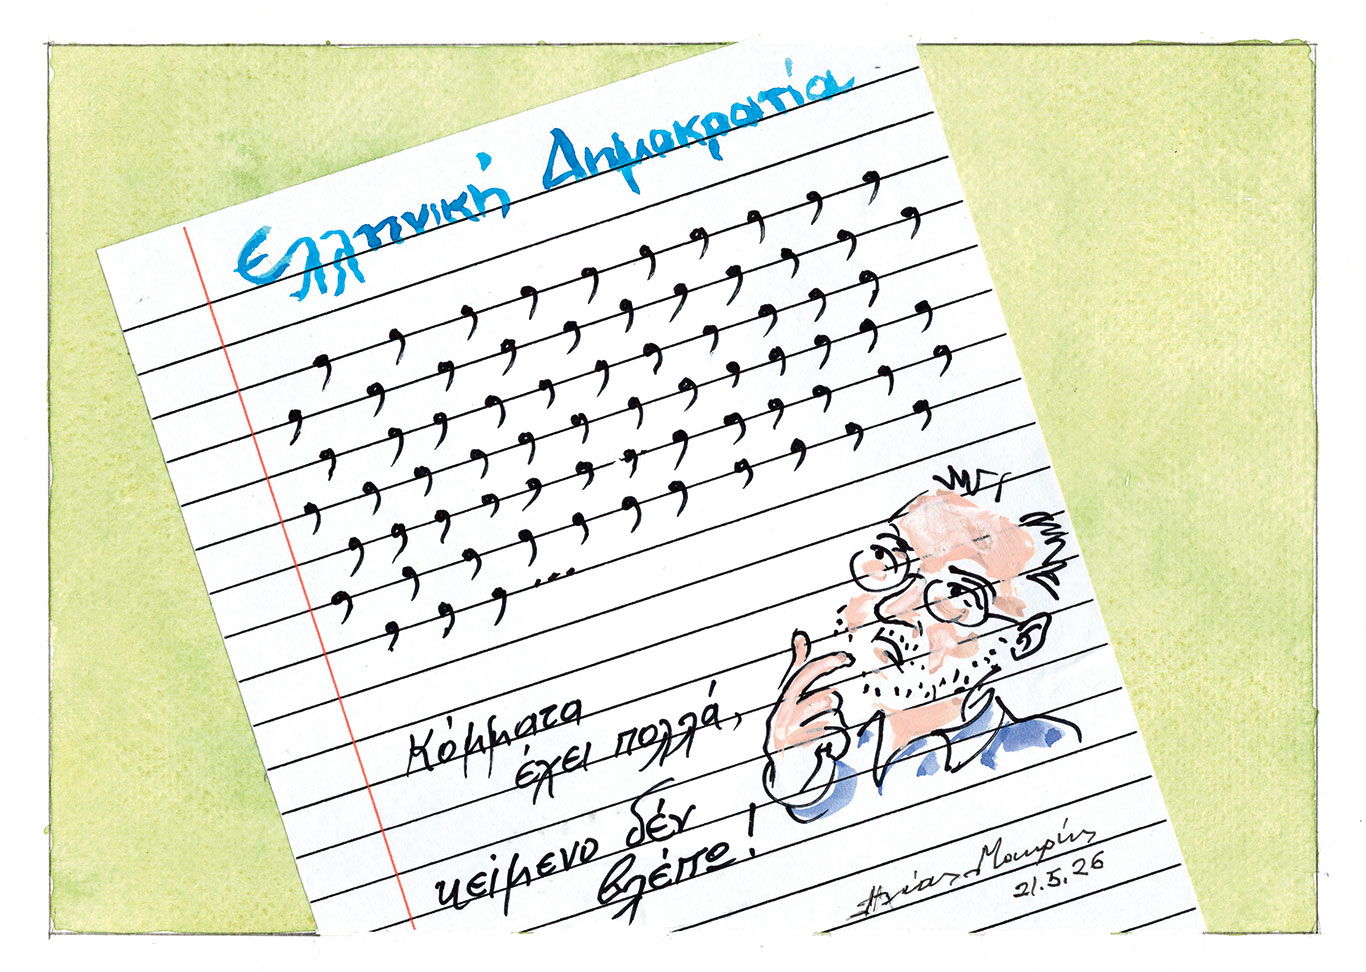 Ελληνική Δημοκρατία
, , , , , , , , , ,
, , , , , , , , , , ,
, , , , , , , , , , ,
, , , , , , , , , , , , ,
, , , , , , , , , , , , ,
, , , , , , , , , , ,
, , , ...
Κόμματα
έχει πολλά,
κείμενο δέν
βλέπω!
Ηλίας Μακρής
21.5.26